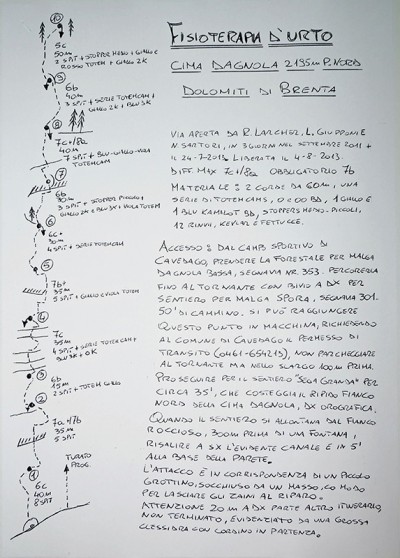 FISIOTERAPIA D'URTO
CIMA DAGNOLA 2135m P. NORD
DOLOMITI DI BRENTA
VIA APERTA DA R. LARCHER, L. GIUPPONI E
N. SARTORI, IN 3 GIORNI NEL SETTEMBRE 2011 +
IL 24-7-2013. LIBERATA IL 4-8-2013.
DIFF. MAX 7c+/8a OBBLIGATORIO 7b
MATERIALE: 2 CORDE DA 60m, UNA
SERIE DI TOTEMCAMS, 0 E 00 BD, 1 GIALLO E
1 BLU KAMALOT BD, STOPPERS MEDIO-PICCOLI,
12 RINVII, KEVLAR E FETTUCCE.
ACCESSO: DAL CAMPO SPORTIVO DI
CAVEDAGO, PRENDERE LA FORESTALE PER MALGA
DAGNOLA BASSA, SEGNAVIA NR. 353. PERCORRERLA
FINO AL TORNANTE CON BIVIO A DX PER
SENTIERO PER MALGA SPORA, SEGNAVIA 301.
50' DI CAMMINO. SI PUÒ RAGGIUNGERE
QUESTO PUNTO IN MACCHINA, RICHIEDENDO
AL COMUNE DI CAVEDAGO IL PERMESSO DI
TRANSITO (0461-654213), NON PARCHEGGIARE
AL TORNANTE MA NELLO SLARGO 100m PRIMA.
PROSEGUIRE PER IL SENTIERO "SEGA GRANDA" PER
CIRCA 35', CHE COSTEGGIA IL RIPIDO FIANCO
NORD DELLA CIMA DAGNOLA, DX OROGRAFICA.
QUANDO IL SENTIERO SI ALLONTANA DAL FIANCO
ROCCIOSO, 300m PRIMA DI UNA FONTANA,
RISALIRE A SX L'EVIDENTE CANALE E IN 5'
ALLA BASE DELLA PARETE.
L'ATTACCO È IN CORRISPONDENZA DI UN PICCOLO
GROTTINO, SOCCHIUSO DA UN MASSO, COMODO
PER LASCIARE GLI ZAINI AL RIPARO.
ATTENZIONE 20m A DX PARTE ALTRO ITINERARIO,
NON TERMINATO, EVIDENZIATO DA UNA GROSSA
CLESSIDRA CON CORDINO IN PARTENZA.
10
5c
50m
2 SPIT + STOPPER MEDIO + GIALLO E
ROSSO TOTEM + GIALLO 2K
9
6b
40m
3 SPIT + SERIE TOTEMCAM +
GIALLO 2K + BLU 3K
8
7c+/8a
40m
7 SPIT + BLU-GIALLO-VIOLA
TOTEMCAM
7
6b
30m
3 SPIT + STOPPER PICCOLI +
GIALLO 2K E BLU 3K + VIOLA TOTEM
6
6c+
30m
4 SPIT + SERIE TOTEMCAM
5
7b+
35m
5 SPIT + GIALLO E VIOLA TOTEM
4
7c
35m
4 SPIT + SERIE TOTEM CAM +
BLU 3K + 0K
3
6b
15m
2 SPIT + TOTEM GIALLO
2
7a+/7b
35m
5 SPIT
1
6c
40m
8 SPIT
TURATO
PROG.